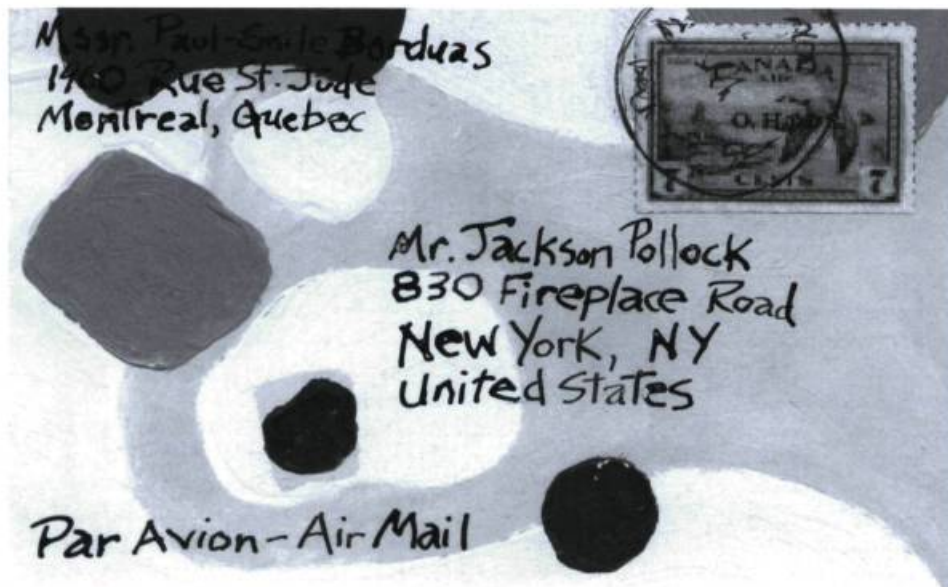 Mssr. Paul-Emile Borduas
1460 Rue St. Jude
Montreal, Quebec
CANADA
AIR
O.H.M.S.
7 CENTS 7
Mr. Jackson Pollock
830 Fireplace Road
New York, NY
United States
Par Avion - Air Mail